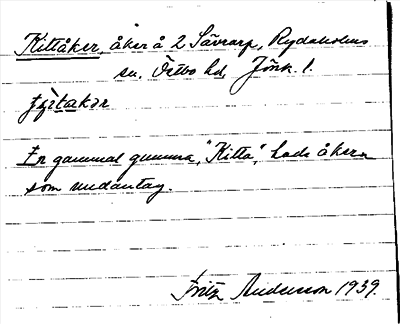 Kittåker, åker å 2 Sävrarp, Rydaholms
sn. Östbo hd, Jönk. l.
En gammal gumma, "Kitta", hade åkern
som undantag.
Fritz Anderson 1939.